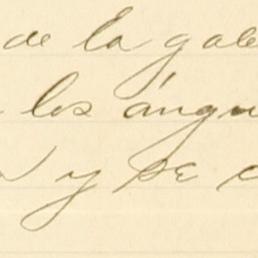 de la gale
los ángu
y se